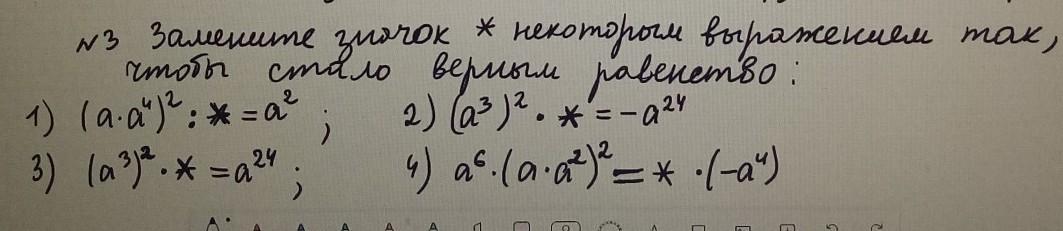 №3 Замените значок * некоторым выражением так,
чтобы стало верным равенство:
1) (a·a⁴)² : * = a² ; 2) (a³)² · * = -a²⁴
3) (a³)² · * = a²⁴ ; 4) a⁶·(a·a²)² = * ·(-a⁴)